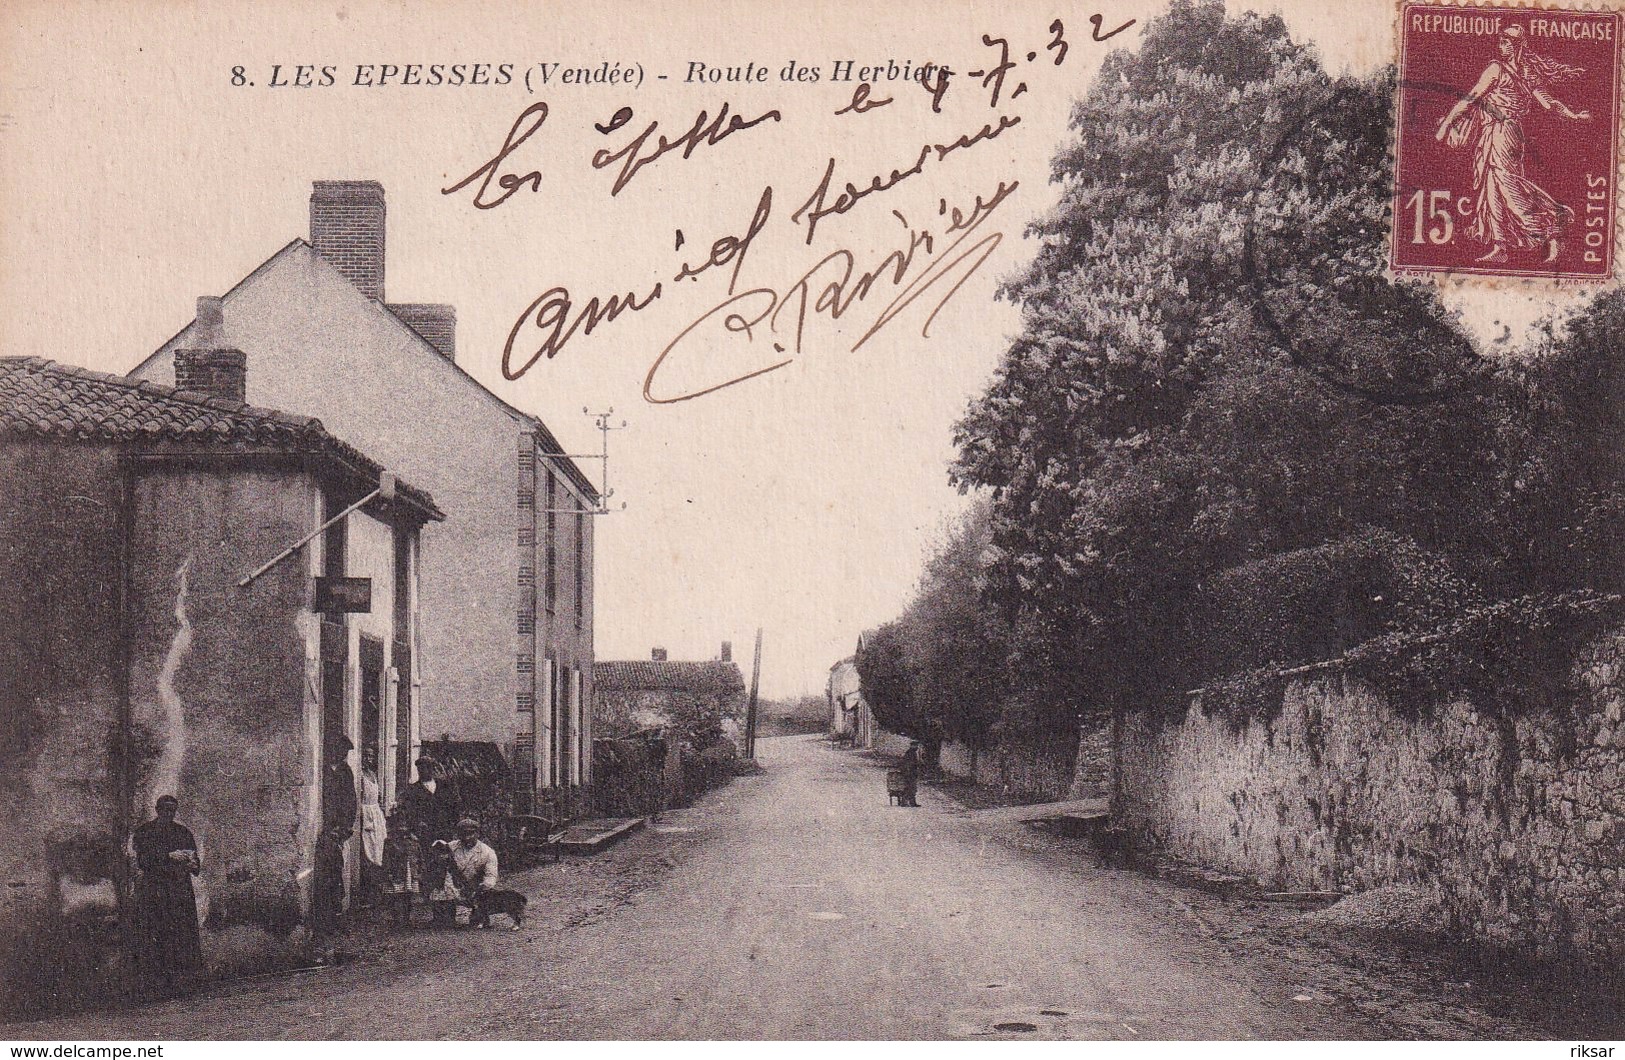 8. LES EPESSES (Vendée) - Route des Herbiers
Les Epesses le 4-7-32
Amical souvenir
C. Rivière
RÉPUBLIQUE FRANÇAISE
15c
POSTES
www.delcampe.net
riksar